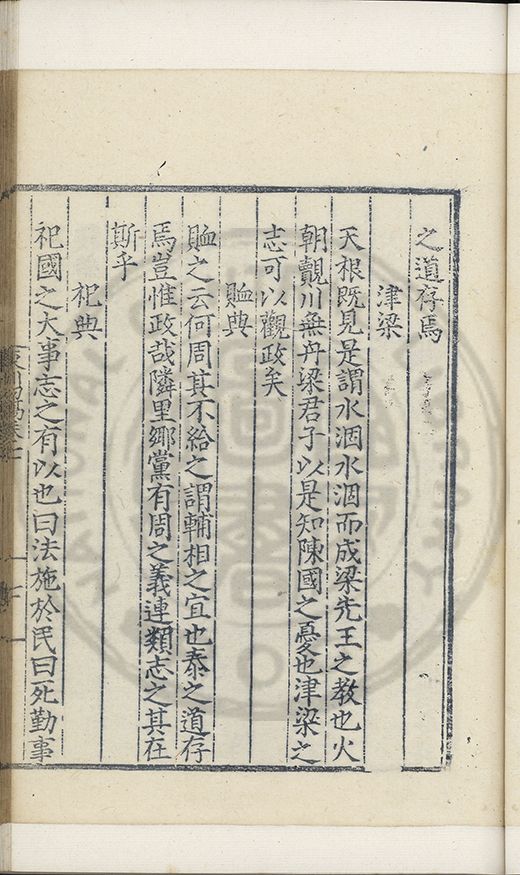 之道存焉
津梁
天根旣見是謂水涸水涸而成梁先王之教也火
朝覿川無舟梁君子以是知陳國之憂也津梁之
志可以觀政矣
賉典
賉之云何周其不給之謂輔相之宜也泰之道存
焉豈惟政哉隣里鄉黨有周之義連類志之其在
斯乎
祀典
祀國之大事志之有以也曰法施於民曰死勤事